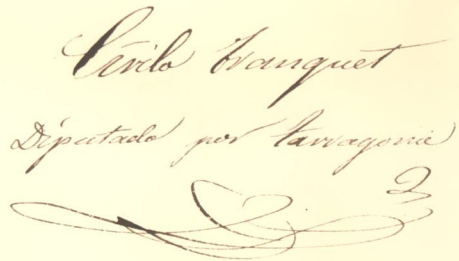 Cirilo Franquet
Diputado por Tarragona